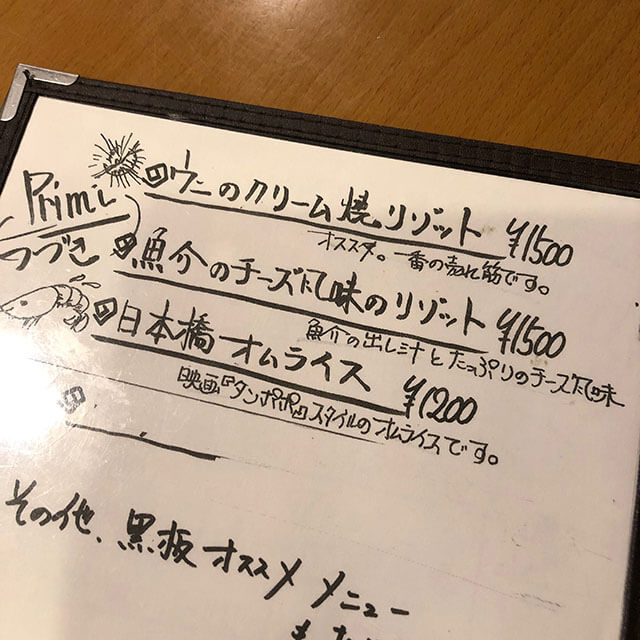 Primi
つづき
ウニのクリーム焼リゾット ¥1500
オススメ。一番の売れ筋です。
魚介のチーズ風味のリゾット ¥1500
魚介の出し汁とたっぷりのチーズ風味
日本橋オムライス ¥1200
映画『タンポポ』スタイルのオムライスです。
その他、黒板オススメメニュー